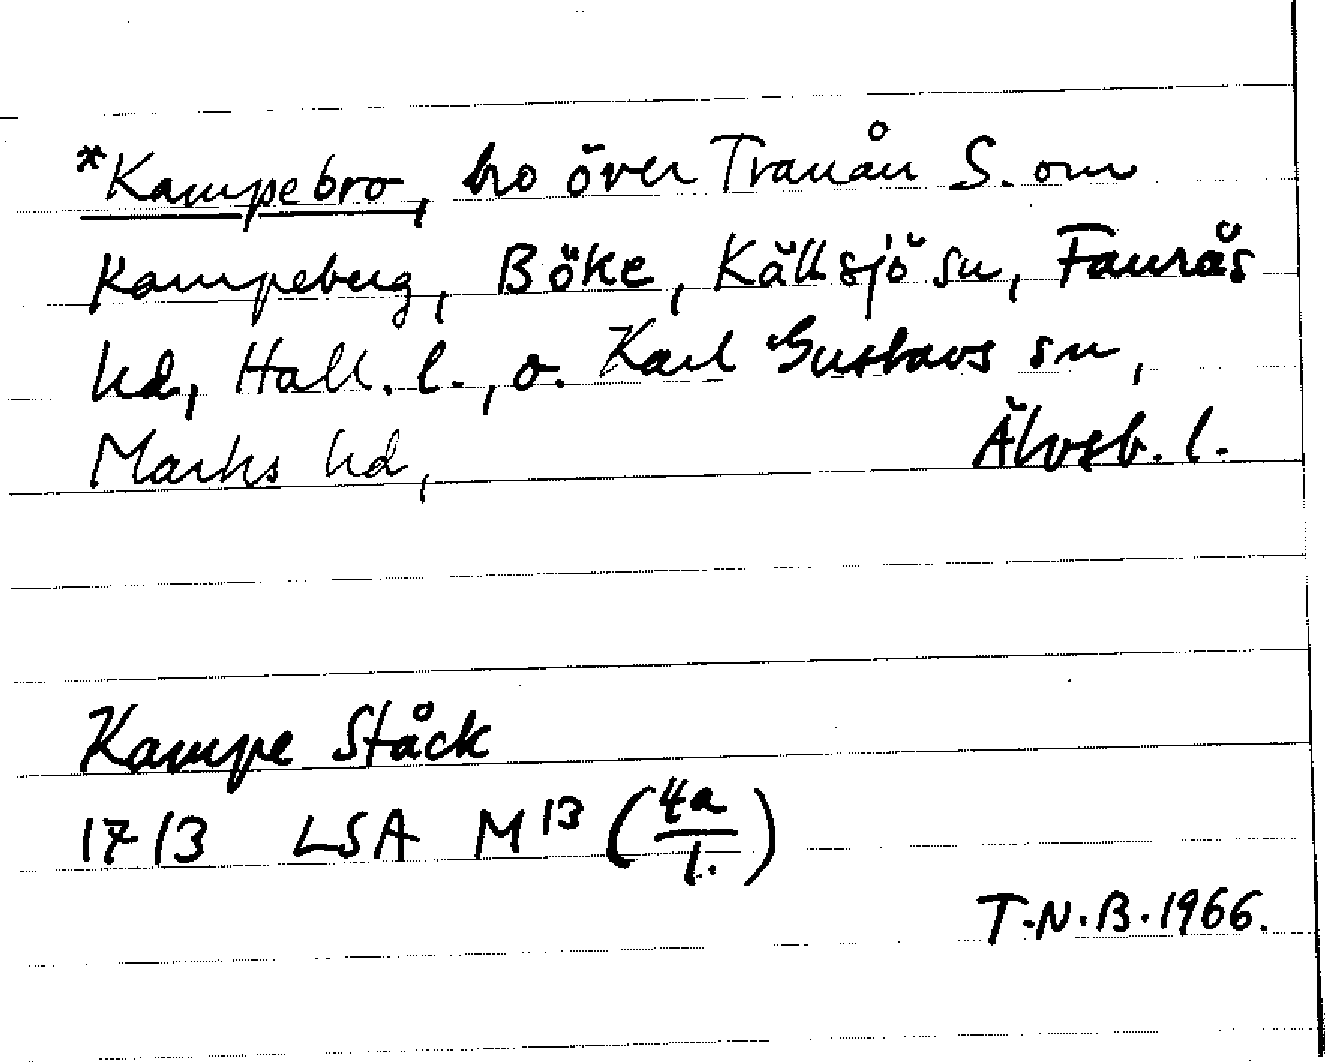 *Kampebro, bro över Tranån S. om
Kampeberg, Böke, Källsjö sn, Faurås
hd, Hall. l., o. Karl Gustavs sn,
Marks hd, Älvsb. l.
Kampe Ståck
1713 LSA M 13 (4a/1.)
T.N.B. 1966.